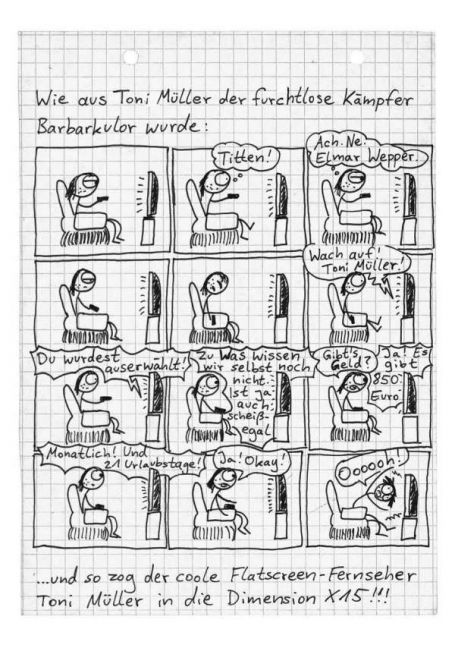 Wie aus Toni Müller der furchtlose Kämpfer
Barbarkulor wurde:
Titten!
Ach. Ne.
Elmar Wepper.
Wach auf!
Toni Müller!
Du wurdest
auserwählt!
Zu was wissen
wir selbst noch
nicht.
Ist ja
auch
scheiß-
egal
Gibt's
Geld?
Ja! Es
gibt
850
Euro
Monatlich! Und
21 Urlaubstage!
Ja! Okay!
Oooooh!
...und so zog der coole Flatscreen-Fernseher
Toni Müller in die Dimension X15!!!